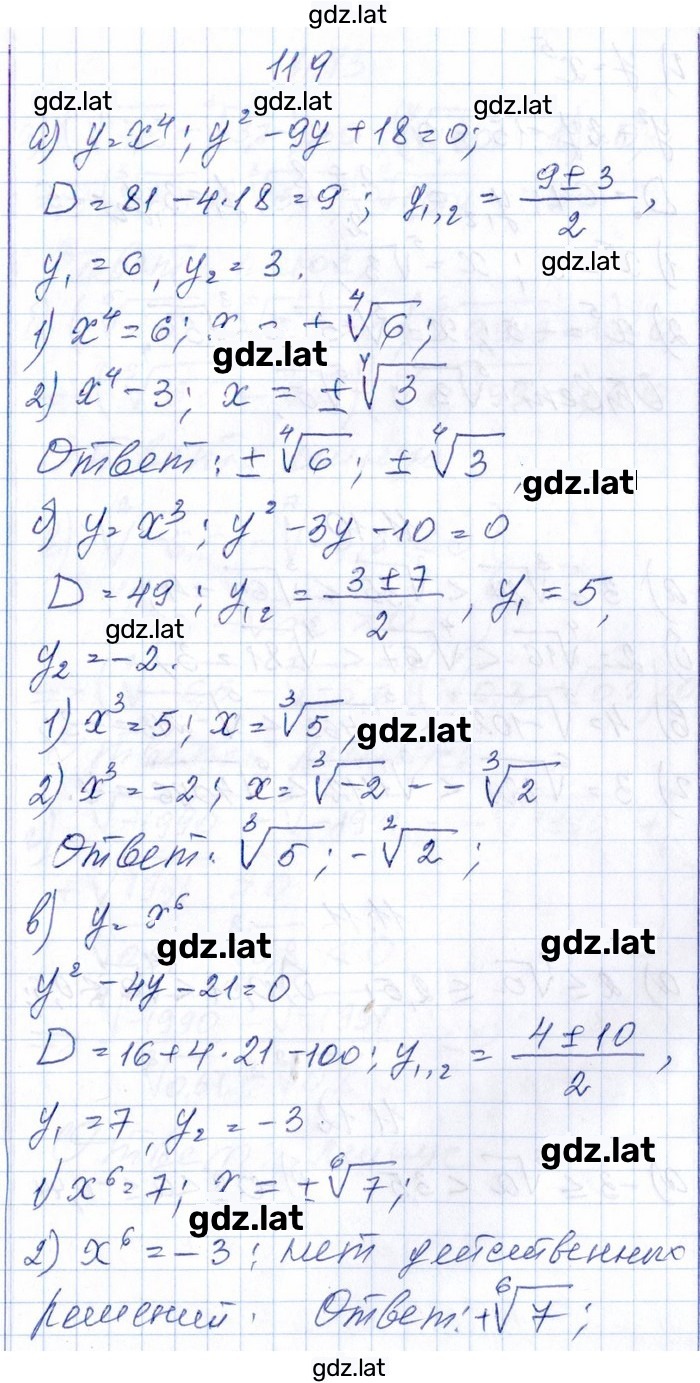 gdz.lat
119
gdz.lat gdz.lat gdz.lat
а) y=x⁴; y²-9y+18=0;
D=81-4·18=9; y₁,₂ = (9±3)/2,
y₁=6, y₂=3. gdz.lat
1) x⁴=6; x = ± ⁴√6;
gdz.lat
2) x⁴-3; x = ± ⁴√3
Ответ: ± ⁴√6; ± ⁴√3
gdz.lat
б) y=x³; y²-3y-10=0
D=49; y₁,₂ = (3±7)/2, y₁=5,
gdz.lat
y₂=-2.
1) x³=5; x=³√5, gdz.lat
2) x³=-2; x=³√-2 - - ³√2
Ответ: ³√5; -²√2;
в) y= x⁶
gdz.lat gdz.lat
y²-4y-21=0
D=16+4·21-100; y₁,₂ = (4±10)/2,
y₁=7, y₂=-3.
gdz.lat
1) x⁶=7; x=±⁶√7;
gdz.lat
2) x⁶=-3; нет
решений. Ответ: +⁶√7;
gdz.lat